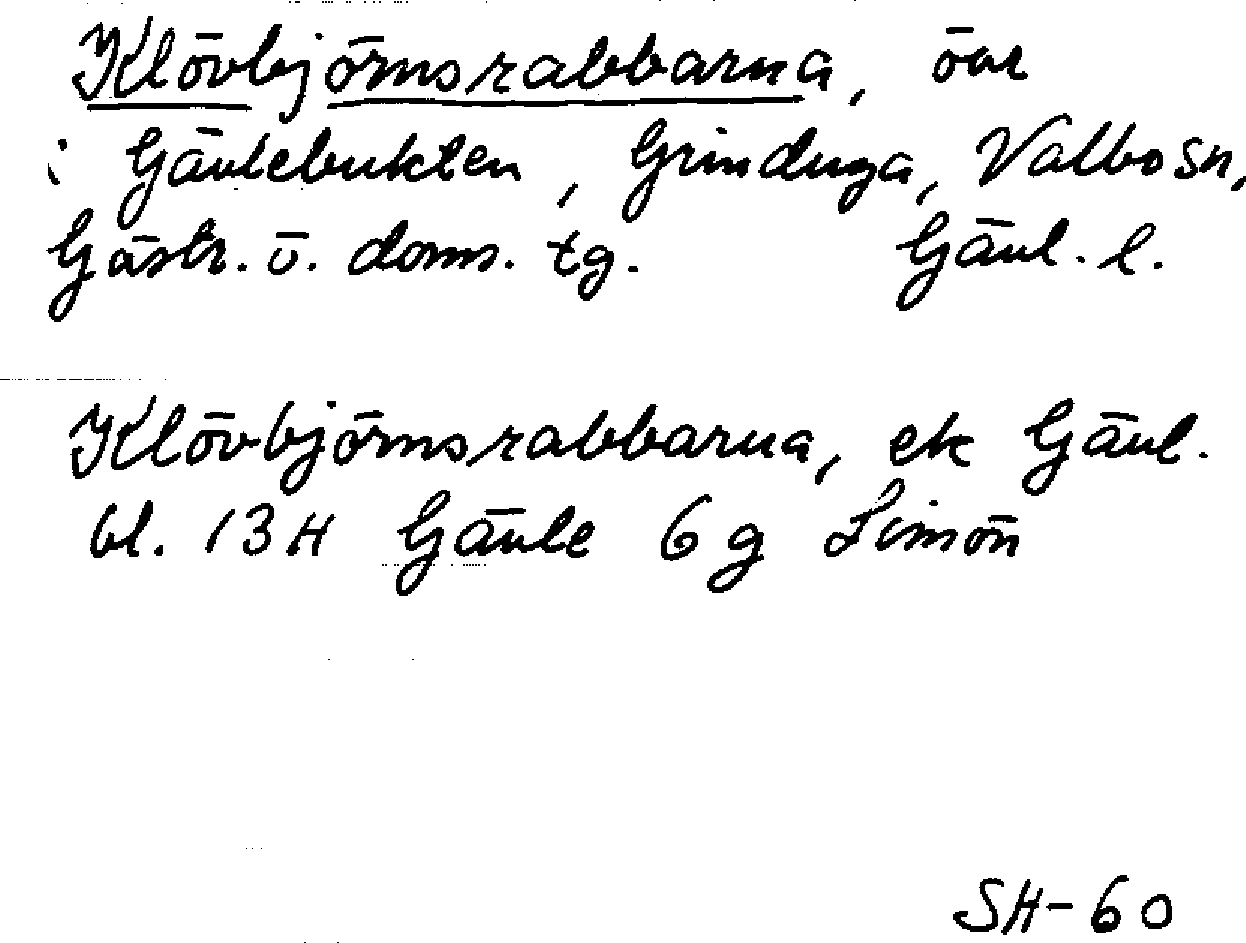 Klövbjörnsrabbarna, öar
i Gävlebukten, Grinduga, Valbo sn,
Gästr. ö. doms. tg. Gävl. l.
Klövbjörnsrabbarna, ek Gävl.
bl. 13H Gävle 6 g Limön
SH-60